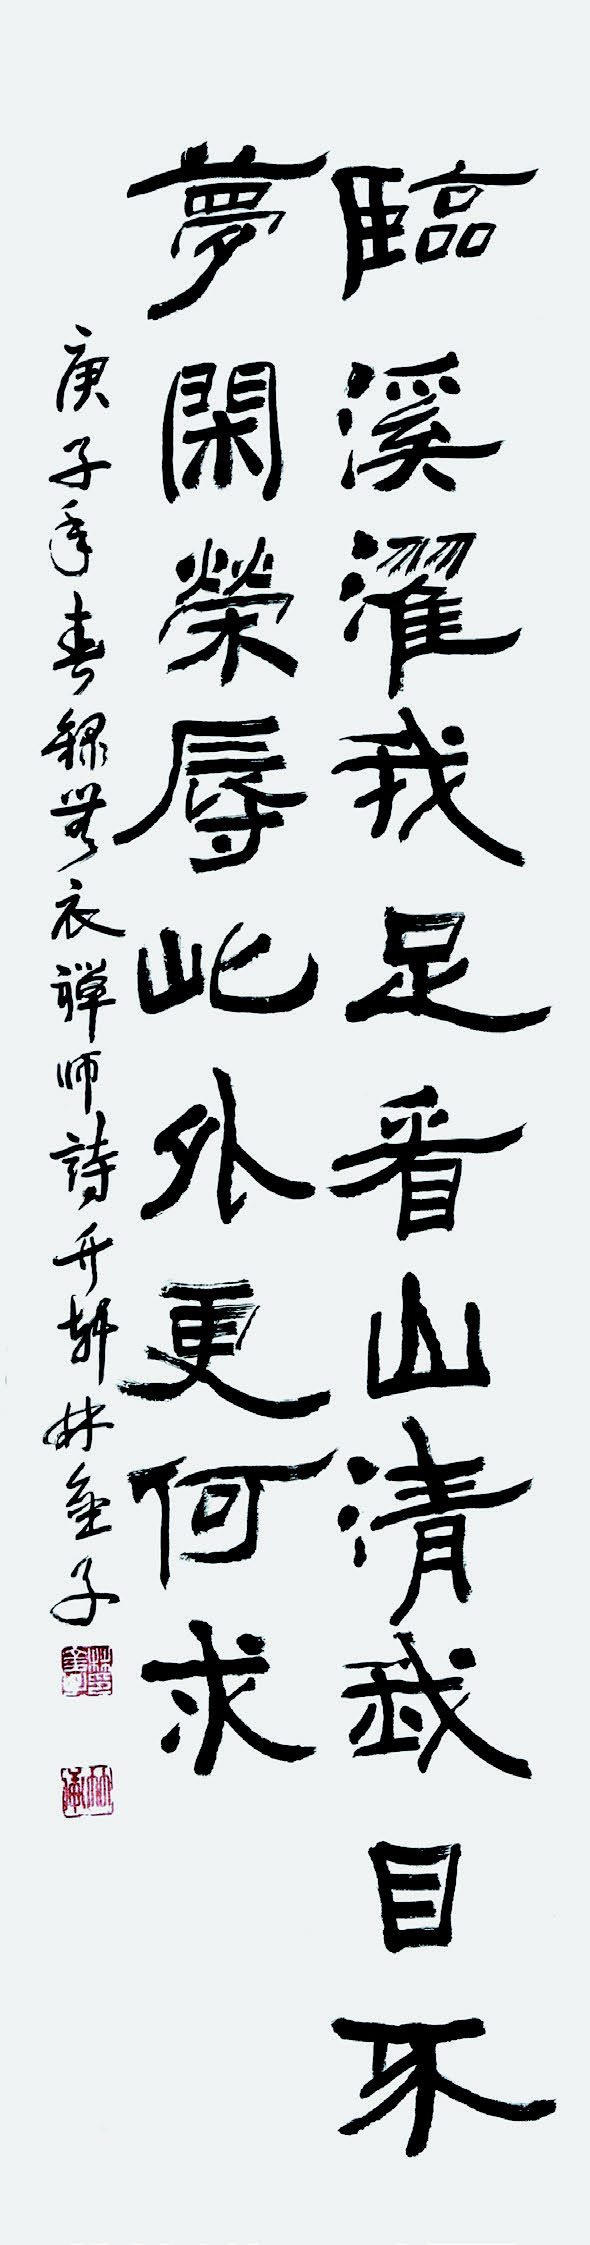 臨溪濯我足看山清我目不
夢閑榮辱此外更何求
庚子年春録無衣禪师詩竹軒林金子